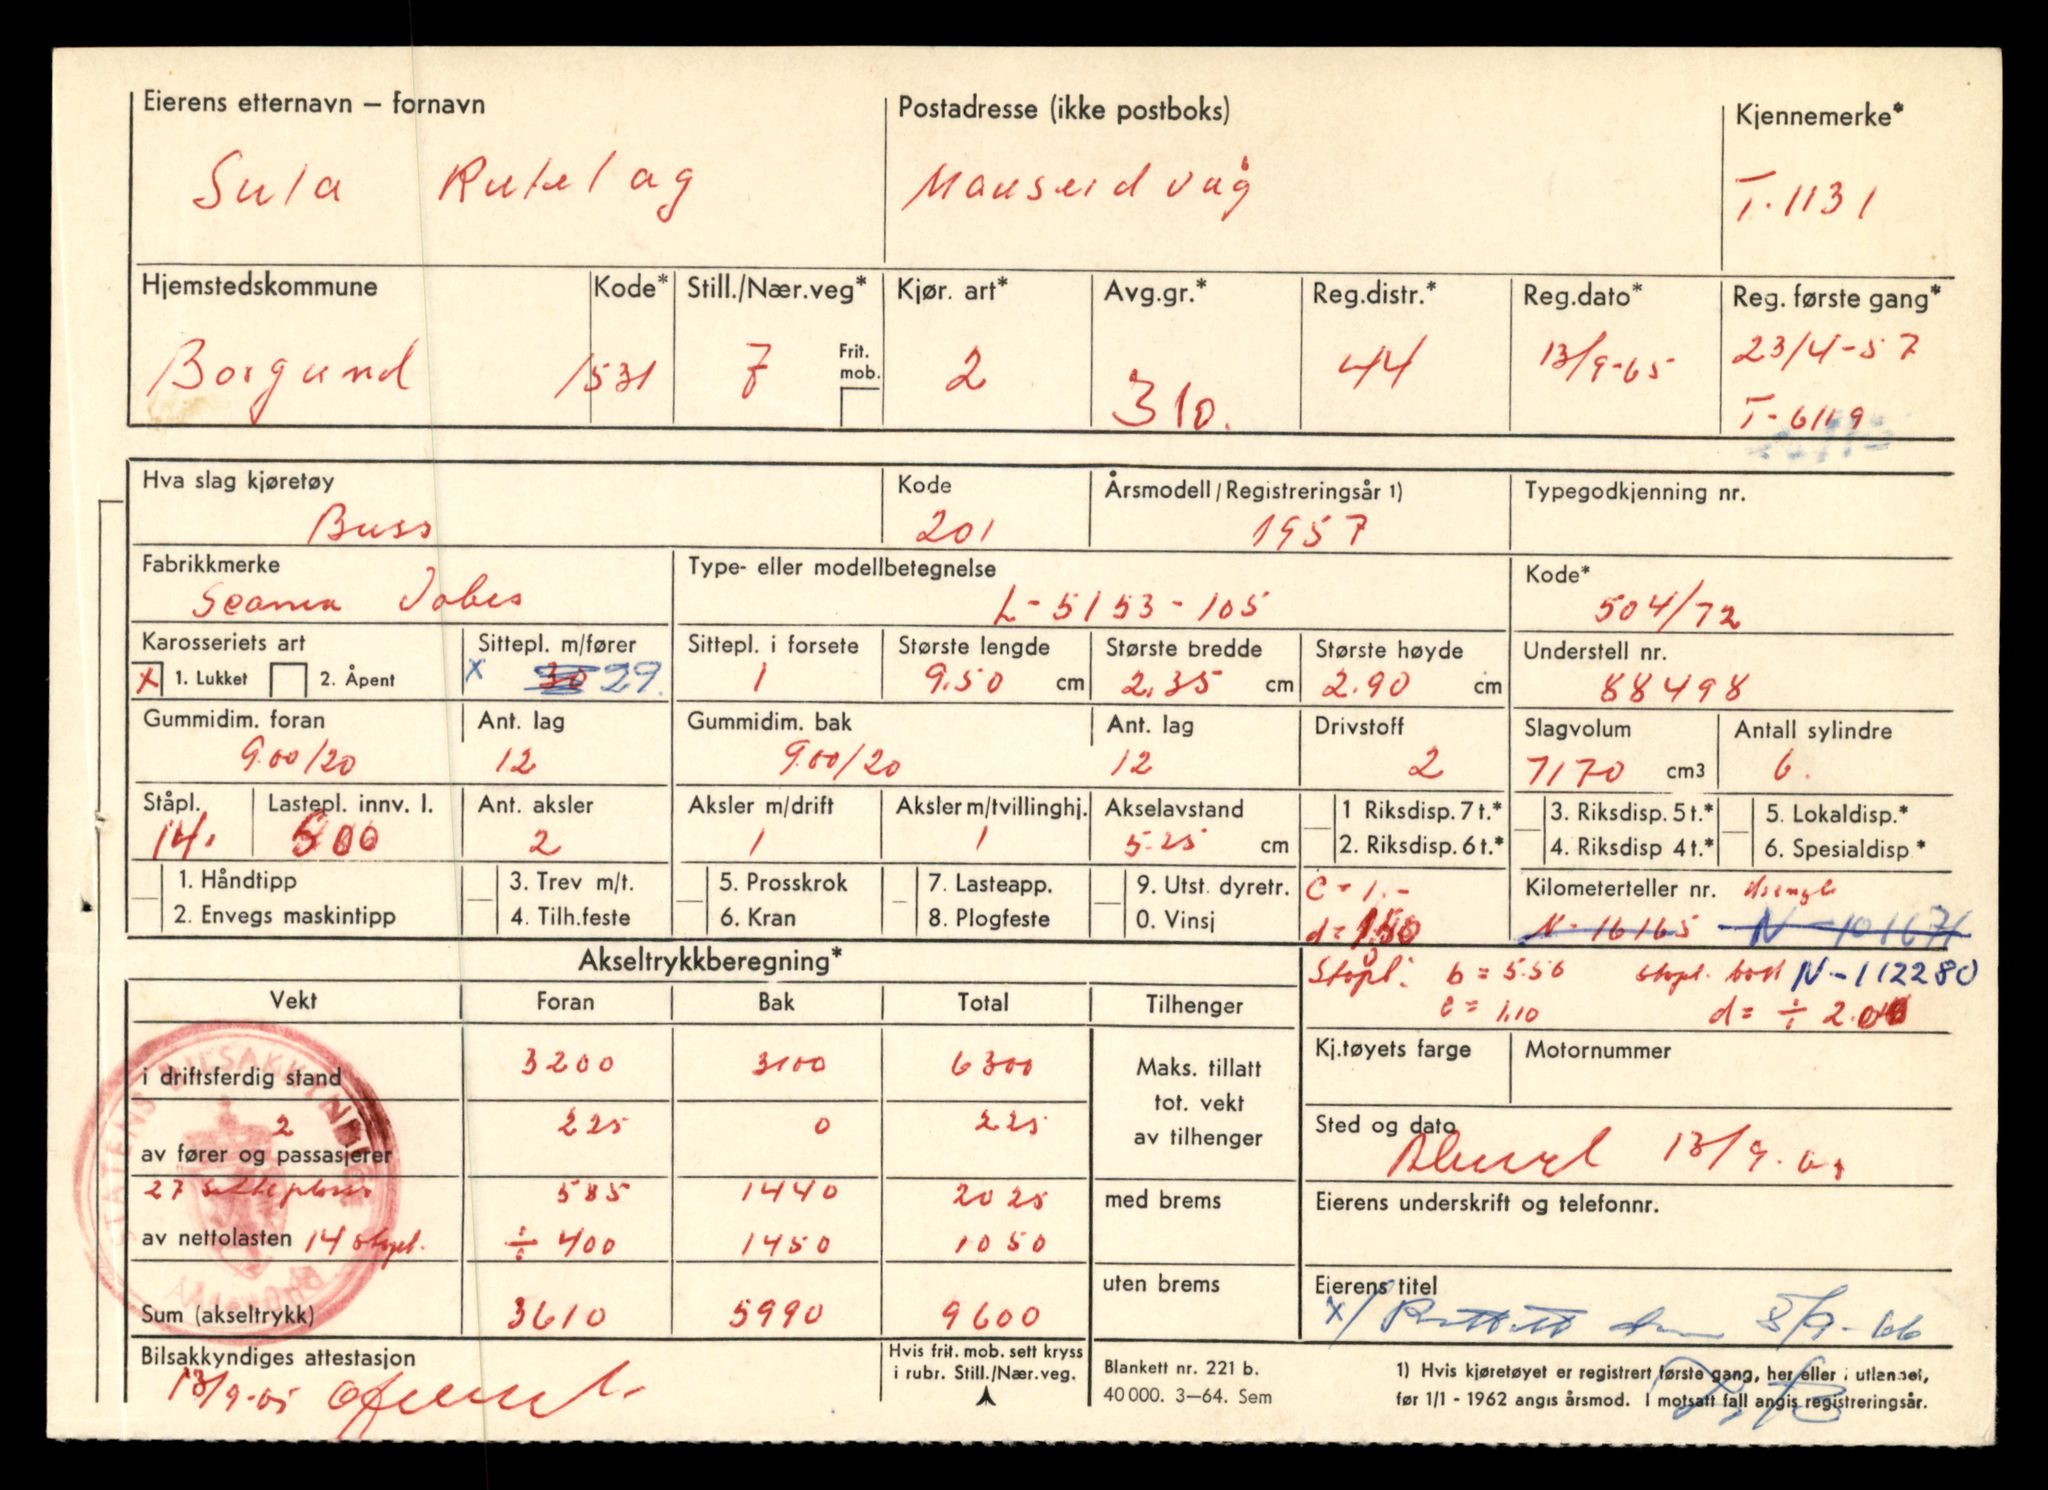 Eierens etternavn – fornavn Postadresse (ikke postboks) Kjennemerke*
Sula Rutelag Mauseidvåg T-1131
Hjemstedskommune Kode* Still./Nær.veg* Kjør. art* Avg.gr.* Reg.distr.* Reg.dato* Reg. første gang*
Borgund 1531 7 Frit. mob. 2 310. 44 13/9-65 23/4-57
T-6119
Hva slag kjøretøy Kode Årsmodell/Registreringsår 1) Typegodkjenning nr.
Buss 201 1957
Fabrikkmerke Type- eller modellbetegnelse Kode*
Scania Vabis L-5153-105 504/72
Karosseriets art Sittepl. m/fører Sittepl. i forsete Største lengde Største bredde Største høyde Understell nr.
X 1. Lukket 2. Åpent x 30 29. 1 9.50 cm 2.35 cm 2.90 cm 88498
Gummidim. foran Ant. lag Gummidim. bak Ant. lag Drivstoff Slagvolum Antall sylindre
9.00/20 12 9.00/20 12 2 7170 cm3 6.
Ståpl. Lastepl. innv. l. Ant. aksler Aksler m/drift Aksler m/tvillinghj. Akselavstand 1 Riksdisp. 7 t.* 3. Riksdisp. 5 t.* 5. Lokaldisp.*
14. 500 2 1 1 5.25 cm 2. Riksdisp. 6 t.* 4. Riksdisp 4 t.* 6. Spesialdisp *
1. Håndtipp 3. Trev m/t. 5. Prosskrok 7. Lasteapp. 9. Utst. dyretr. c = 1.- Kilometerteller nr.
2. Envegs maskintipp 4. Tilh.feste 6. Kran 8. Plogfeste 0. Vinsj d = N-16165 N-101671
Akseltrykkberegning* b = 5.56 N-112280
Vekt Foran Bak Total Tilhenger c = 1.10 d = ÷ 2.00
i driftsferdig stand 3200 3100 6300 Maks. tillatt tot. vekt av tilhenger Kj.tøyets farge Motornummer
2
av fører og passasjerer 225 0 225 Sted og dato
13/9-65
27 sitteplasser 585 1440 2025 med brems Eierens underskrift og telefonnr.
av nettolasten 14 ståpl. ÷ 400 1450 1050
uten brems Eierens titel
Sum (akseltrykk) 3610 5990 9600 x/ 8/9-66
Bilsakkyndiges attestasjon Hvis frit. mob. sett kryss i rubr. Still./Nær.veg. Blankett nr. 221 b. 1) Hvis kjøretøyet er registrert første gang, her eller i utlandet,
13/9-65 40 000. 3–64. Sem før 1/1 - 1962 angis årsmod. I motsatt fall angis registreringsår.
STATENS BILSAKKYNDIGE